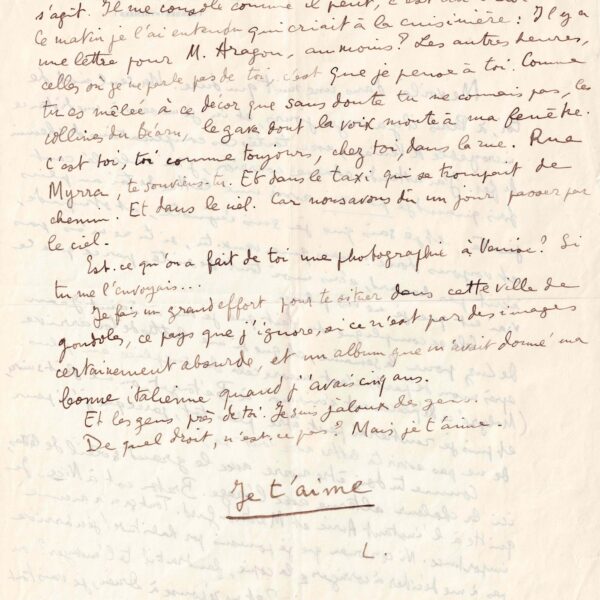 s'agit. Il me console comme il peut, c'est
Ce matin je l'ai entendu qui criait à la cuisinière : Il y a
une lettre pour M. Aragon, au moins ? Les autres heures,
celles où je ne parle pas de toi, c'est que je pense à toi. Comme
tu es mêlée à ce décor que sans doute tu ne connais pas, les
collines du Béarn, le gave dont la voix monte à ma fenêtre.
C'est toi, toi comme toujours, chez toi, dans la rue. Rue
Myrra, te souviens-tu. Et dans le taxi qui se trompait de
chemin ! Et dans le ciel. Car nous avons dû un jour passer par
le ciel.
Est-ce qu'on a fait de toi une photographie à Venise ? Si
tu me l'envoyais...
Je fais un grand effort pour te situer dans cette ville de
gondoles, ce pays que j'ignore, si ce n'est par des images
certainement absurdes, et un album que m'avait donné ma
bonne italienne quand j'avais cinq ans.
Et les gens près de toi. Je suis jaloux de gens.
De quel droit, n'est-ce pas ? Mais je t'aime.
Je t'aime
L.